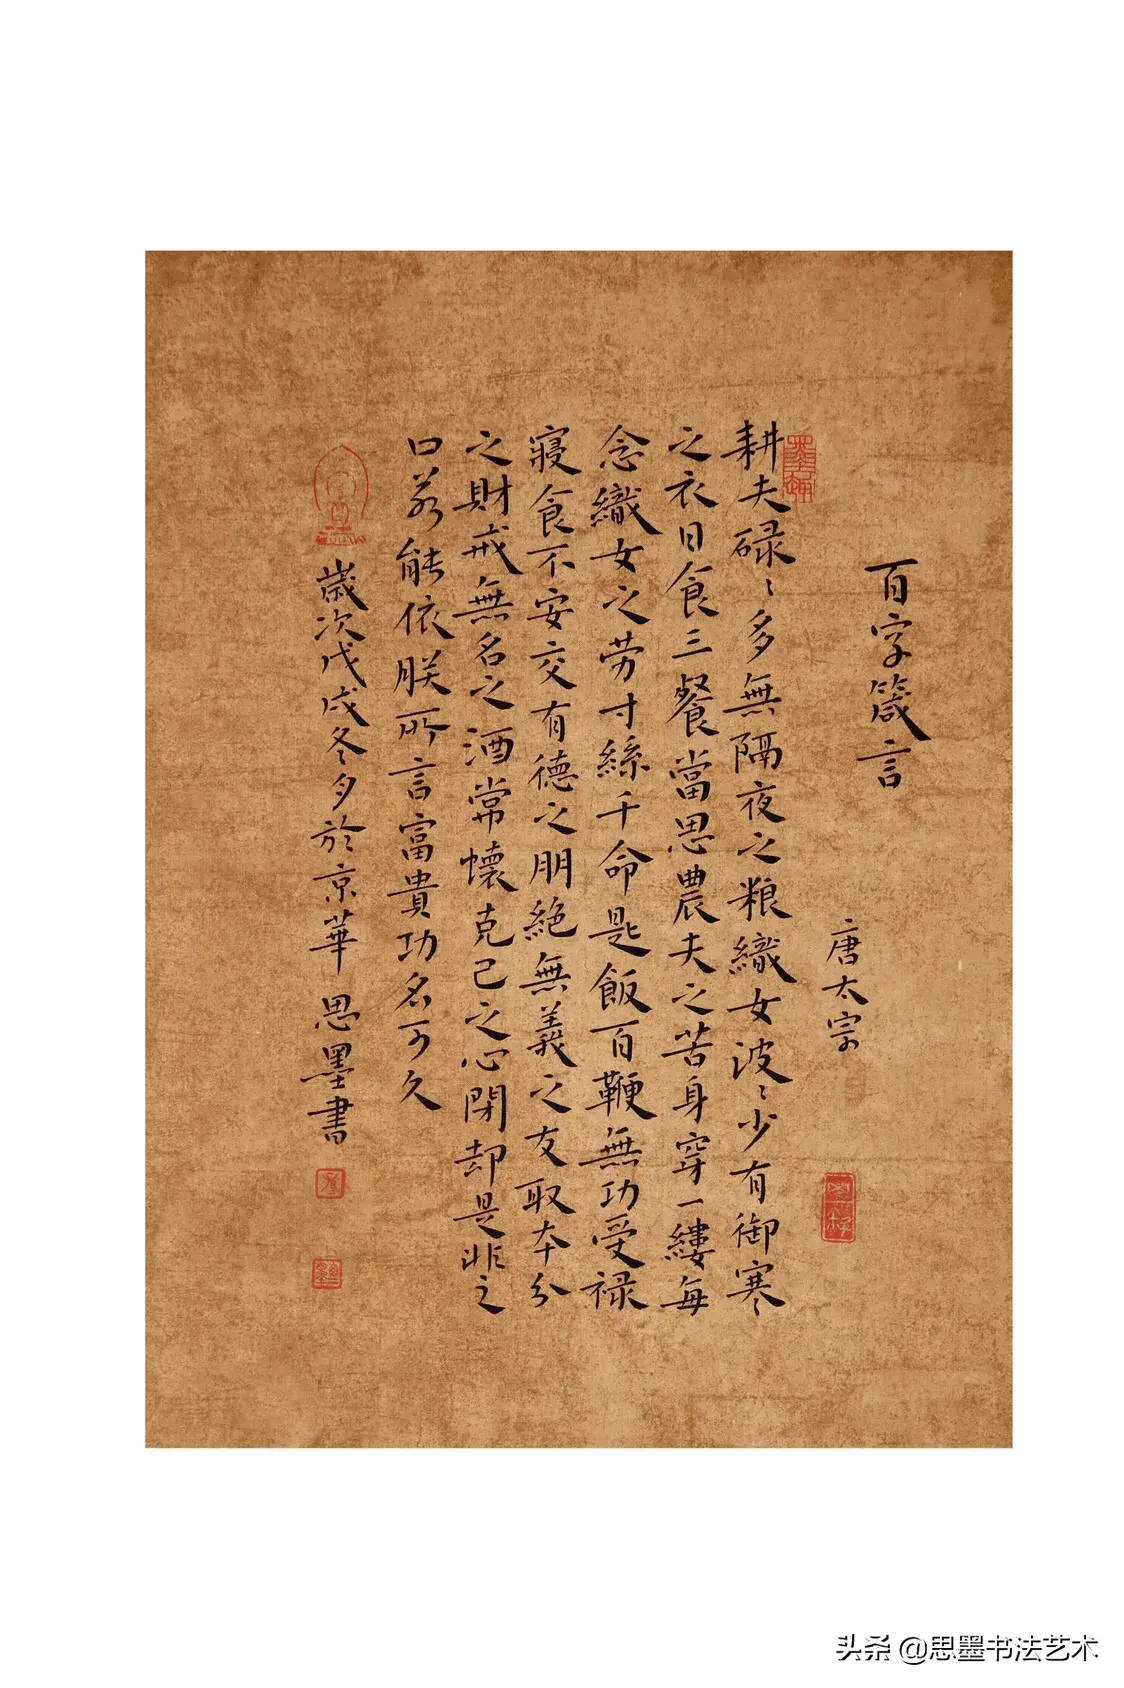 百字箴言
唐太宗
耕夫碌〻多無隔夜之粮織女波〻少有御寒
之衣日食三餐當思農夫之苦身穿一縷每
念織女之劳寸絲千命匙飯百鞭無功受禄
寢食不安交有德之朋絕無義之友取本分
之財戒無名之酒常懷克己之心閉却是非之
口若能依朕所言富貴功名可久
歲次戊戌冬夕於京華 思墨書
头条 @思墨书法艺术